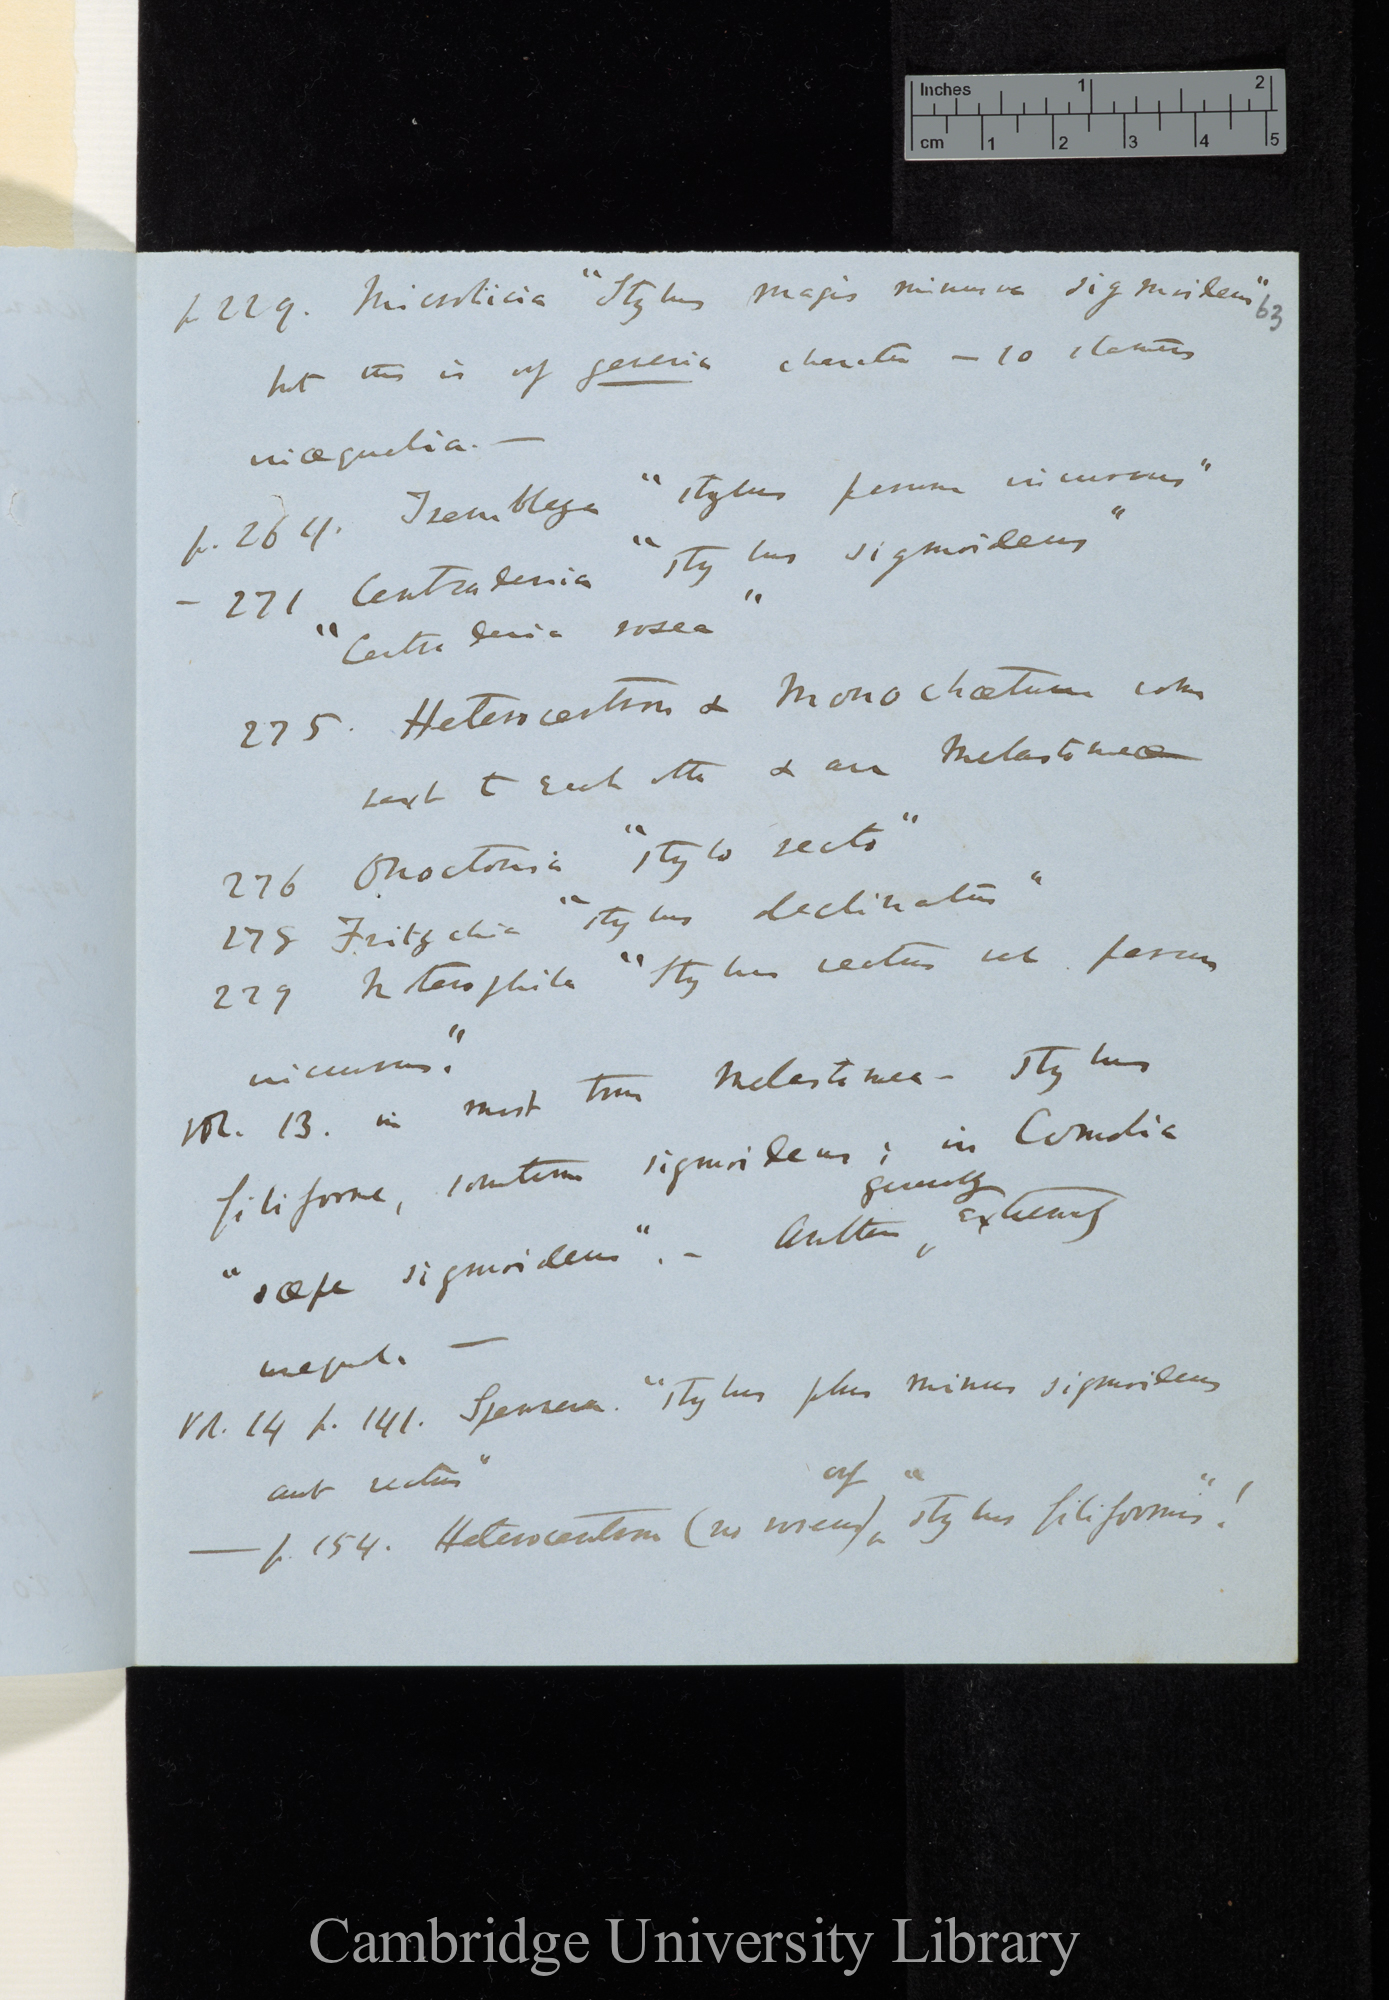 Inches 1 2
cm 1 2 3 4 5
63
p 229. Microlicia "Stylus magis minusve sigmoideus"
but this is of generic character — 10 stamens
inæqualia. —
p. 264. "stylus parum incurvus"
— 271 Centradenia "stylus sigmoideus"
"Centradenia rosea"
275. Heterocentron & Monochætum come
next to each other & are Melastomeæ
276 Ochoctonia "stylo recto"
278 Fritzchia "stylus declinatus"
279 Heterophila "Stylus rectus vel parum
incurvus".
Vol. 13. in most true Melastomea — Stylus
filiforme, sometimes sigmoideus; in
generally
"sæpe sigmoideus". — Anthers extremely
unequal. —
Vol. 14 p. 141. "Stylus plus minus sigmoideus
aut rectus"
of
— p. 154. Heterocentron (no roseum) "stylus filiformis"!
Cambridge University Library